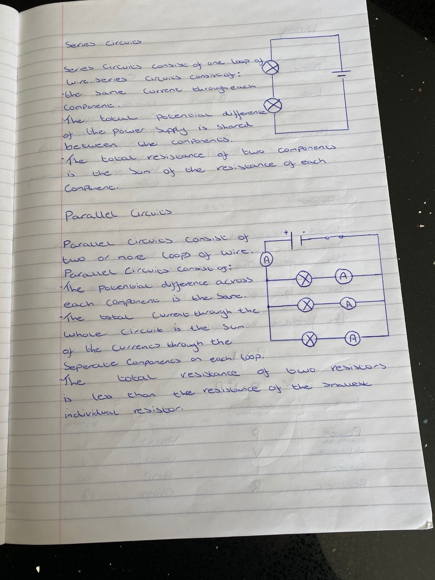 Series Circuits
Series Circuits consist of one loop of
wire. Series Circuits consist of:
·the same current through each
component.
·The total potential difference
of the power supply is shared
between the components.
·The total resistance of two components
is the sum of the resistance of each
component.
Parallel Circuits
Parallel Circuits consist of
two or more loops of wire.
Parallel Circuits consist of:
·The potential difference across
each component is the same.
·The total current through the
whole circuit is the sum
of the currents through the
separate components on each loop.
·The total resistance of two resistors
is less than the resistance of the smallest
individual resistor.
+ -
A
A
A
A